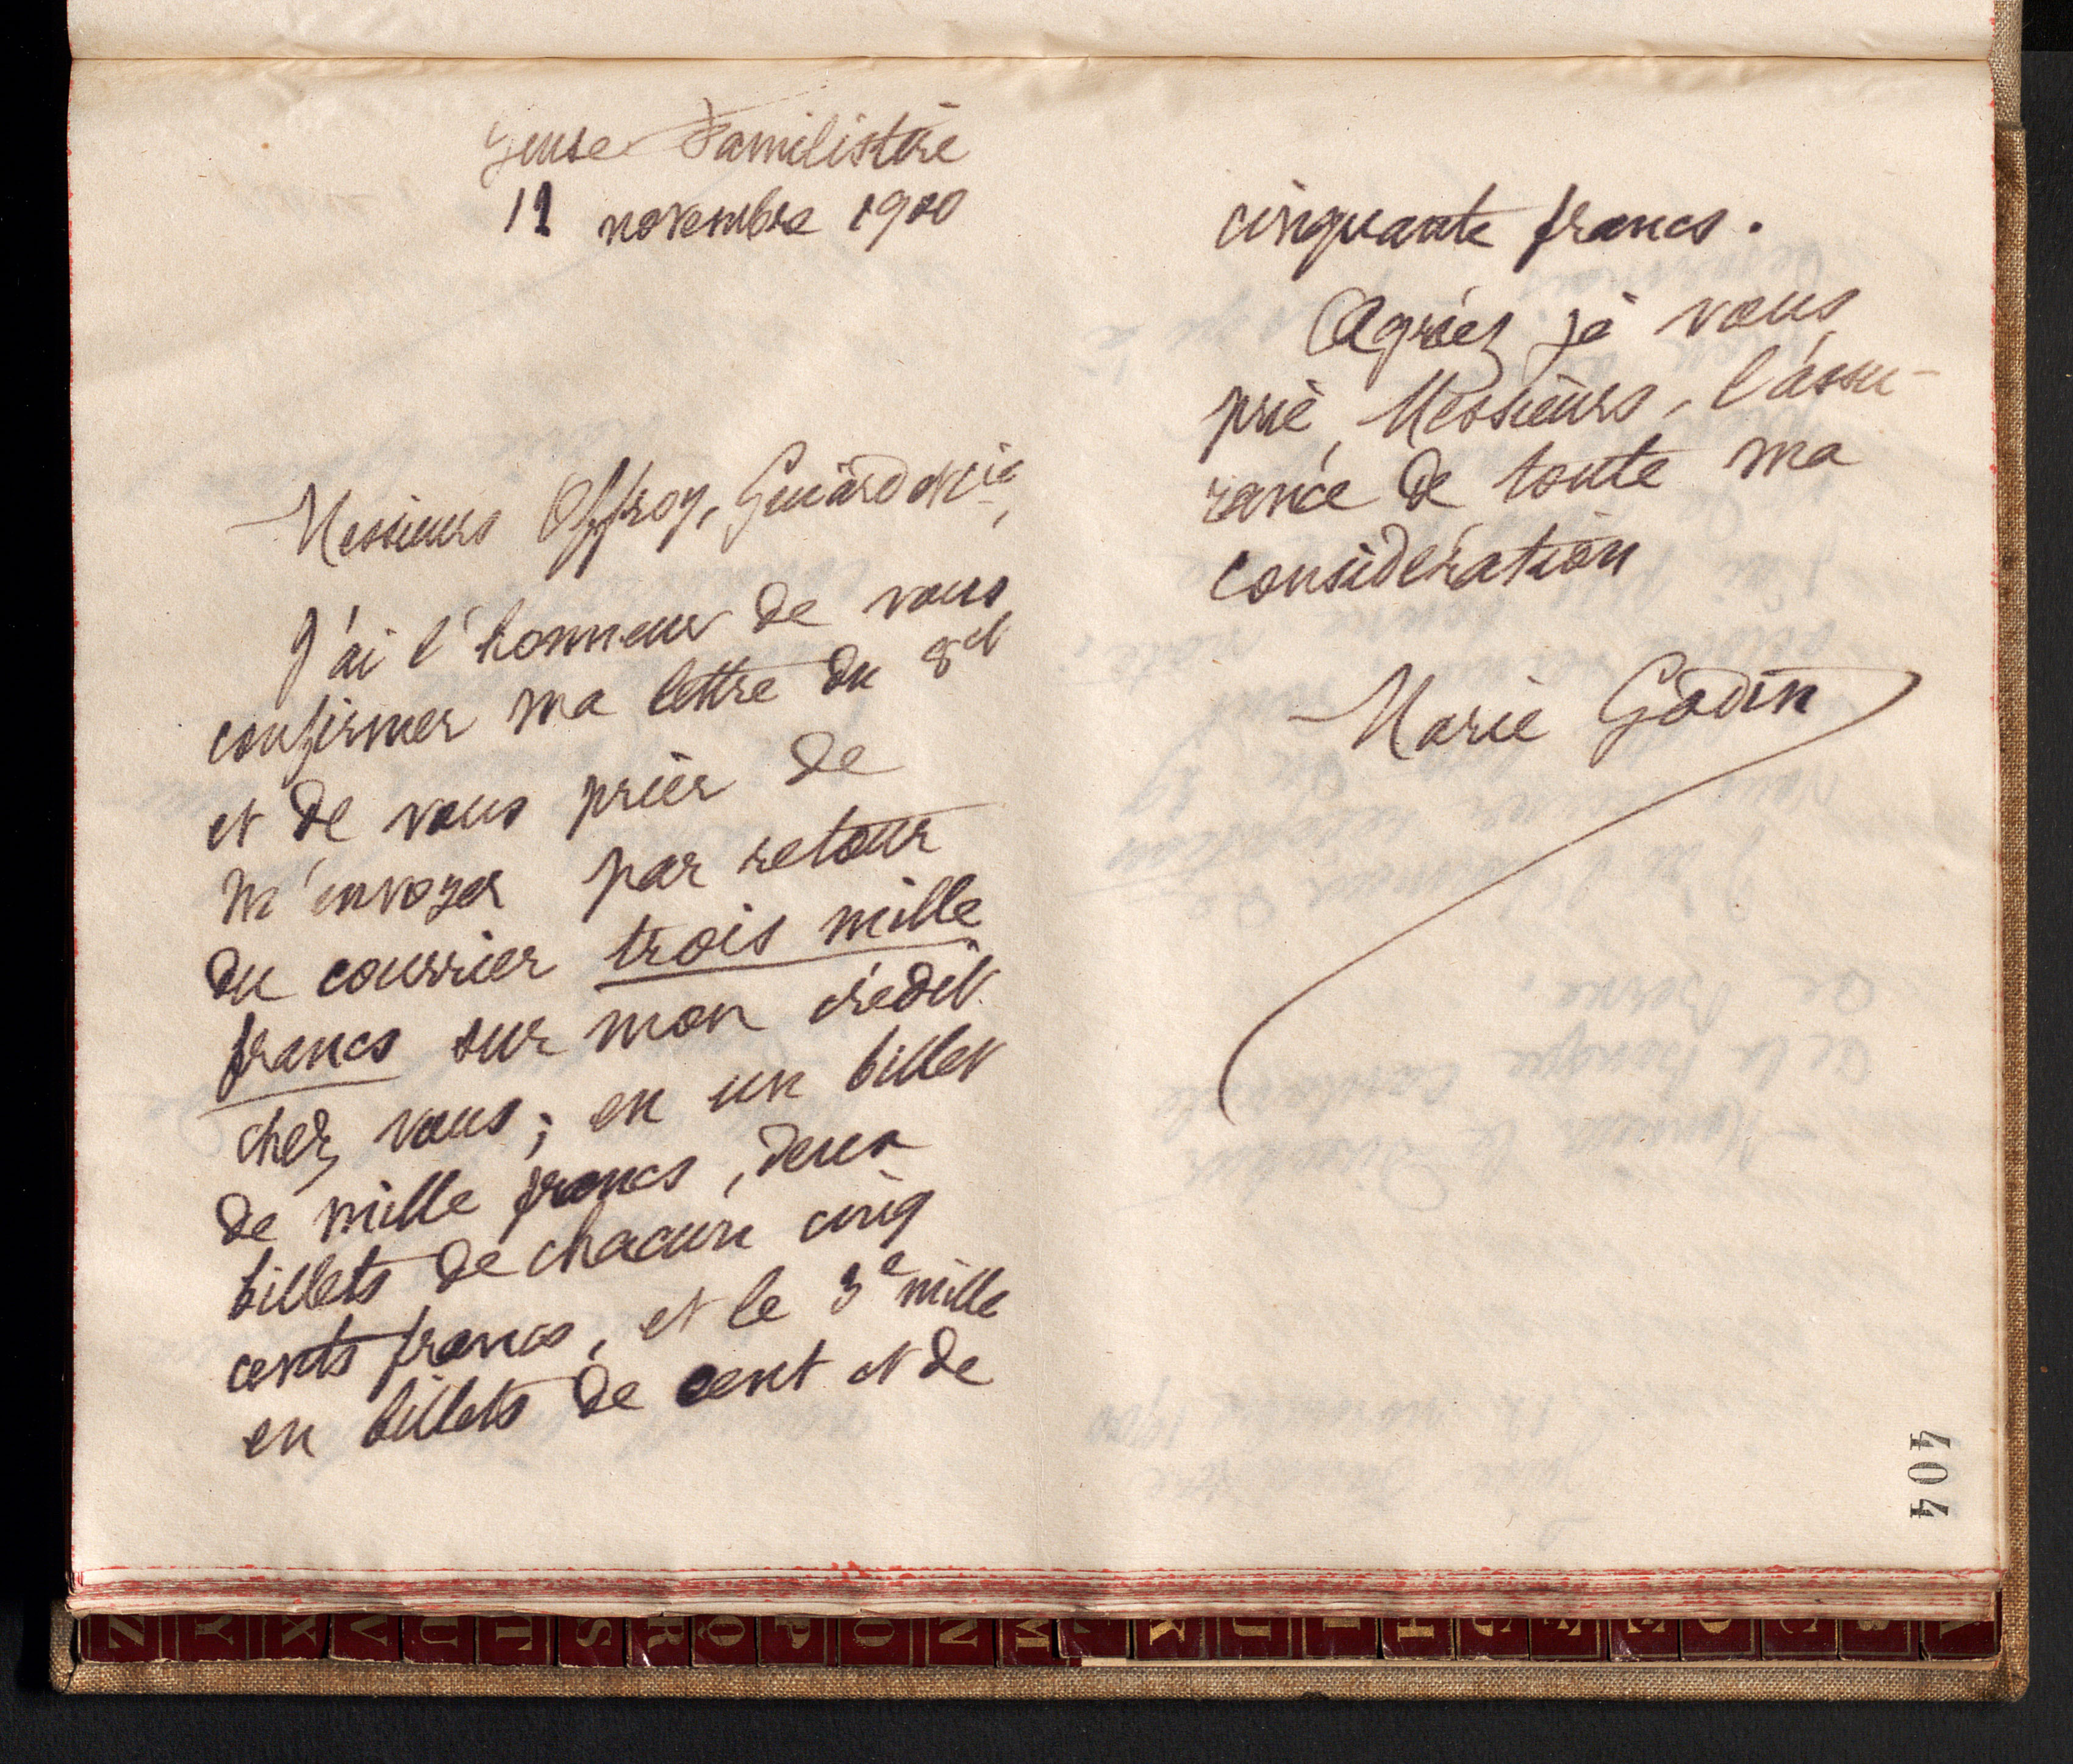 Guise Familistère
11 novembre 1900
Messieurs Offroy, Guiard et Cie,
J'ai l'honneur de vous
confirmer ma lettre du 8 ct
et de vous prier de
m'envoyer par retour
du courrier trois mille
francs sur mon crédit
chez vous ; en un billet
de mille francs, deux
billets de chacun cinq
cents francs, et le 3e mille
en billets de cent et de
cinquante francs.
Agréez je vous
prie, Messieurs, l'assu-
rance de toute ma
considération
Marie Godin
404
Z Y X V U T S R Q P O N M L K J I H G F E D C B A